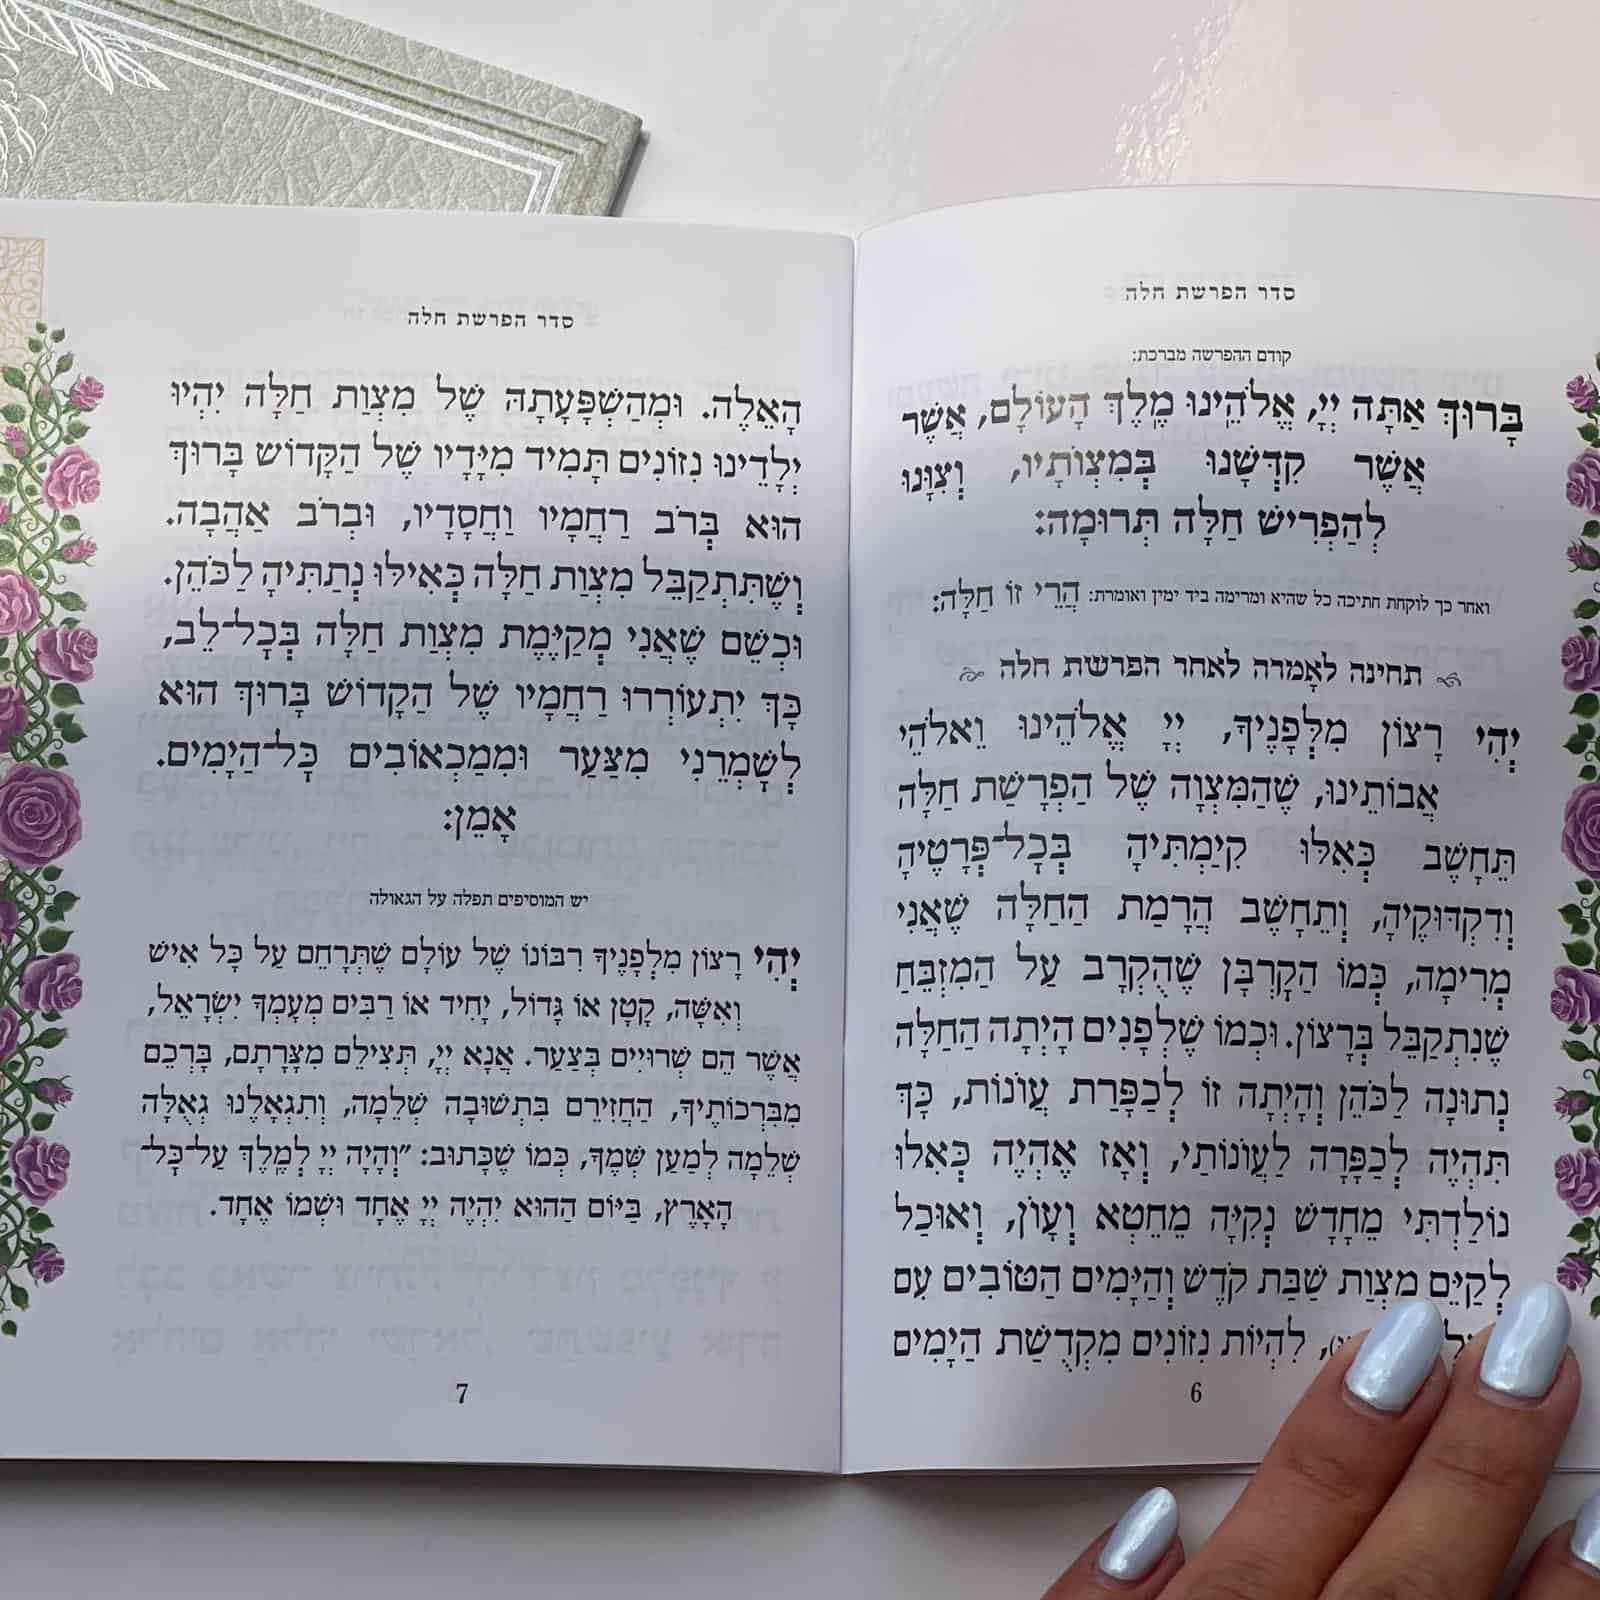 סדר הפרשת חלה
קודם ההפרשה מברכת:
בָּרוּךְ אַתָּה יְיָ, אֱלֹהֵֽינוּ מֶֽלֶךְ הָעוֹלָם, אֲשֶׁר
אֲשֶׁר קִדְּשָׁנוּ בְּמִצְוֹתָיו, וְצִוָּנוּ
לְהַפְרִישׁ חַלָּה תְּרוּמָה:
ואחר כך לוקחת חתיכה כל שהיא ומרימה ביד ימין ואומרת: הֲרֵי זוֹ חַלָּה:
תחינה לאָמרה לאחר הפרשת חלה
יְהִי רָצוֹן מִלְּפָנֶיךָ, יְיָ אֱלֹהֵינוּ וֵאלֹהֵי
אֲבוֹתֵינוּ, שֶׁהַמִּצְוָה שֶׁל הַפְרָשַׁת חַלָּה
תֵּחָשֵׁב כְּאִלּוּ קִיַּמְתִּיהָ בְּכָל־פְּרָטֶיהָ
וְדִקְדּוּקֶיהָ, וְתֵחָשֵׁב הֲרָמַת הַחַלָּה שֶׁאֲנִי
מְרִימָה, כְּמוֹ הַקָּרְבָּן שֶׁהֻקְרַב עַל הַמִּזְבֵּחַ
שֶׁנִּתְקַבֵּל בְּרָצוֹן. וּכְמוֹ שֶׁלְּפָנִים הָיְתָה הַחַלָּה
נְתוּנָה לַכֹּהֵן וְהָיְתָה זוֹ לְכַפָּרַת עֲוֹנוֹת, כָּךְ
תִּהְיֶה לְכַפָּרָה לַעֲוֹנוֹתַי, וְאָז אֶהְיֶה כְּאִלּוּ
נוֹלַדְתִּי מֵחָדָשׁ נְקִיָּה מֵחֵטְא וְעָוֹן, וְאוּכַל
לְקַיֵּם מִצְוַת שַׁבַּת קֹדֶשׁ וְהַיָּמִים הַטּוֹבִים עִם
לִהְיוֹת נִזּוֹנִים מִקְּדֻשַּׁת הַיָּמִים
6
סדר הפרשת חלה
הָאֵלֶּה. וּמֵהַשְׁפָּעָתָהּ שֶׁל מִצְוַת חַלָּה יִהְיוּ
יְלָדֵינוּ נִזּוֹנִים תָּמִיד מִיָּדָיו שֶׁל הַקָּדוֹשׁ בָּרוּךְ
הוּא בְּרֹב רַחֲמָיו וַחֲסָדָיו, וּבְרֹב אַהֲבָה.
וְשֶׁתִּתְקַבֵּל מִצְוַת חַלָּה כְּאִילּוּ נְתַתִּיהָ לַכֹּהֵן.
וּכְשֵׁם שֶׁאֲנִי מְקַיֶּמֶת מִצְוַת חַלָּה בְּכָל־לֵב,
כָּךְ יִתְעוֹרְרוּ רַחֲמָיו שֶׁל הַקָּדוֹשׁ בָּרוּךְ הוּא
לְשָׁמְרֵנִי מִצַּעַר וּמִמַּכְאוֹבִים כָּל־הַיָּמִים.
אָמֵן:
יש המוסיפים תפלה על הגאולה
יְהִי רָצוֹן מִלְּפָנֶיךָ רִבּוֹנוֹ שֶׁל עוֹלָם שֶׁתְּרַחֵם עַל כָּל אִישׁ
וְאִשָּׁה, קָטָן אוֹ גָּדוֹל, יָחִיד אוֹ רַבִּים מֵעַמְּךָ יִשְׂרָאֵל,
אֲשֶׁר הֵם שְׁרוּיִים בְּצַעַר. אָנָּא יְיָ, תַּצִּילֵם מִצָּרָתָם, בָּרְכֵם
מִבִּרְכוֹתֶיךָ, הַחֲזִירֵם בִּתְשׁוּבָה שְׁלֵמָה, וְתִגְאָלֵנוּ גְּאֻלָּה
שְׁלֵמָה לְמַעַן שְׁמֶךָ, כְּמוֹ שֶׁכָּתוּב: "וְהָיָה יְיָ לְמֶלֶךְ עַל־כָּל־
הָאָרֶץ, בַּיּוֹם הַהוּא יִהְיֶה יְיָ אֶחָד וּשְׁמוֹ אֶחָד.
7